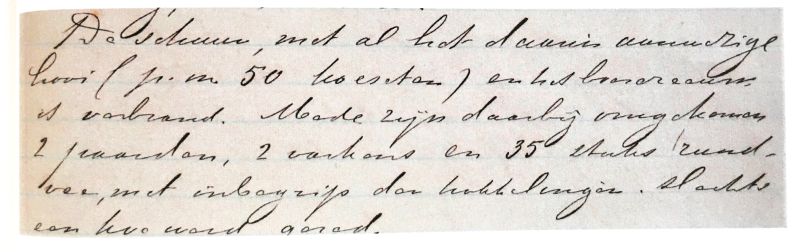 De schuur, met al het daarin aanwezige
hooi (p.m 50 koeseten) en het boereraam
is verbrand. Mede zijn daarbij omgekomen
2 paarden, 2 varkens en 35 stuks rund-
vee, met inbegrip der hokkelingen. Slechts
een koe werd gered.